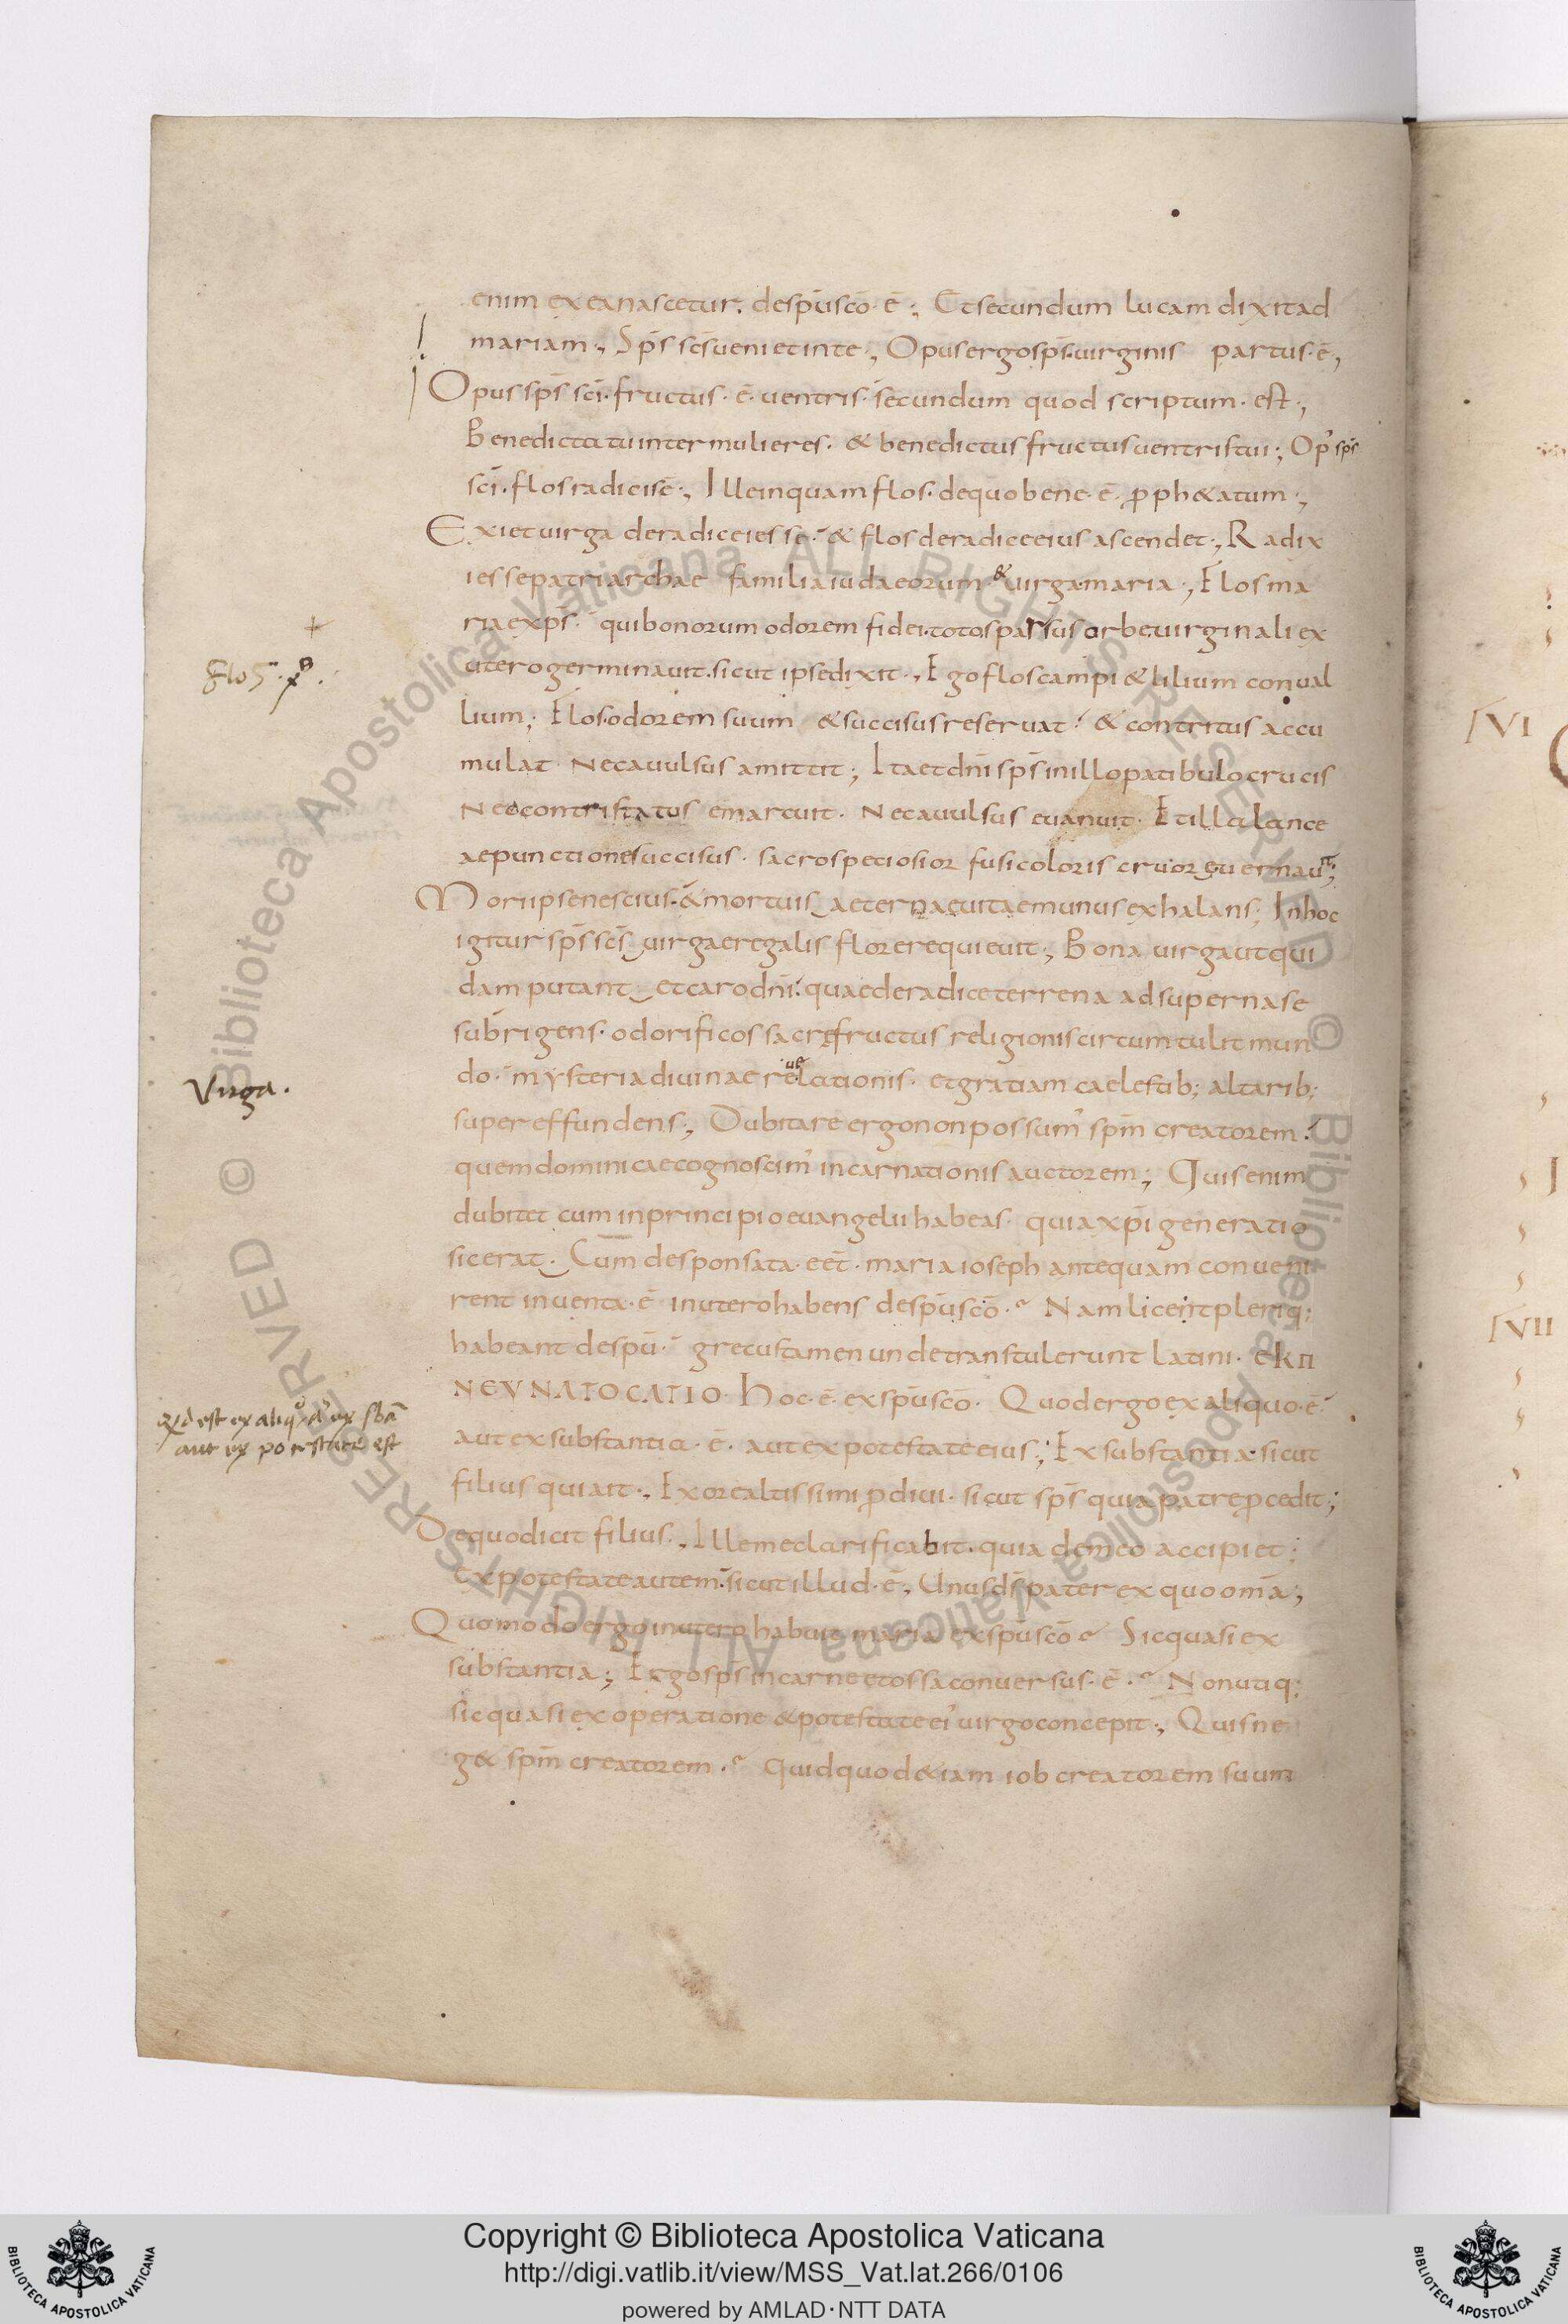 enim ex ea nascetur. de spū scō. ē ; Et secundum lucam dixit ad
mariam ., Sp̄s scs̄ veniet in te ., Opus ergo sp̄s. virginis partus. ē ,
Opus sp̄s scī. fructus. ē. ventris. secundum quod scriptum. est .,
Benedicta tu inter mulieres. & benedictus fructus ventris tui ; Op' sp̄s
scī. flos radicis ē ., Ille inquam flos. de quo bene. ē. ꝓph&atum .,
Exiet virga de radice iesse. & flos de radice eius ascendet ., Radix
iesse patriarchae familia iudaeorum & virga. maria ., Flos ma
riae xp̄s. qui bonorum odorem fidei. toto sparsus orbe virginali ex
utero germinavit. sicut ipse dixit ., Ego flos campi & lilium conval
lium ; Flos. odorem suum & succisus reservat. & contritus accu
mulat nec avulsus amittit ; Ita et dn̄i sp̄s in illo patibulo crucis
nec contristatus emarcuit. nec avulsus evanuit. Et illa lance
ae punctione succisus. sacro speciosior fusi coloris cruore vernavit ;
Mori ipse nescius. & mortuis aeternae vitae munus exhalans ; In hoc
igitur sp̄s scs̄ virgae regalis flore requievit ., Bona virga ut qui
dam putant et caro dn̄i. quae de radice terrena ad superna se
subrigens. odorificos sacrę fructus religionis circumtulit mun
do. mysteria divinae relationis. et gratiam caelestib; altarib;
ve
super effundens ., Dubitare ergo non possum' spm̄ creatorem.
quem dominicae cognoscim' incarnationis auctorem ; Quis enim
dubitet cum in principio evangelii habeas quia xp̄i generatio
sic erat. Cum desponsata. eēt. maria ioseph antequam conveni
rent inventa. ē in utero habens de spū scō. Nam licet pleriq;
habeant de spū. grecus tamen unde transtulerunt latini. ekπ
NEVNATOCATIO. hoc. ē. ex spū scō. Quod ergo ex aliquo. ē
aut ex substantia. ē. aut ex potestate eius ; Ex substantia sicut
filius qui ait ., Ex ore altissimi ꝓdivi. sicut sp̄s qui a patre ꝓcedit ;
De quo dicit filius ., Ille me clarificabit. quia de meo accipiet ;
Ex potestate autem. sicut illud. ē , Unus ds̄ pater ex quo omā ;
Quomodo ergo in utero habuit maria ex spū scō Si quasi ex
substantia ; Ergo sp̄s in carne et ossa conversus. ē. Non utiq;
sic quasi ex operatione & potestate ei' virgo concepit ., Quis ne
g& spm̄ creatorem. Quid quod &iam iob creatorem suum
Flos. xp̄s.
Virga.
qđ est ex aliquo aut ex sbā
aut ex potestate est
[VI
[VII
Copyright © Biblioteca Apostolica Vaticana
http://digi.vatlib.it/view/MSS_Vat.lat.266/0106
powered by AMLAD·NTT DATA
BIBLIOTECA APOSTOLICA VATICANA
BIBLIOTECA APOSTOLICA VATICANA
© Biblioteca Apostolica Vaticana ALL RIGHTS RESERVED © Biblioteca Apostolica Vaticana ALL RIGHTS RESERVED